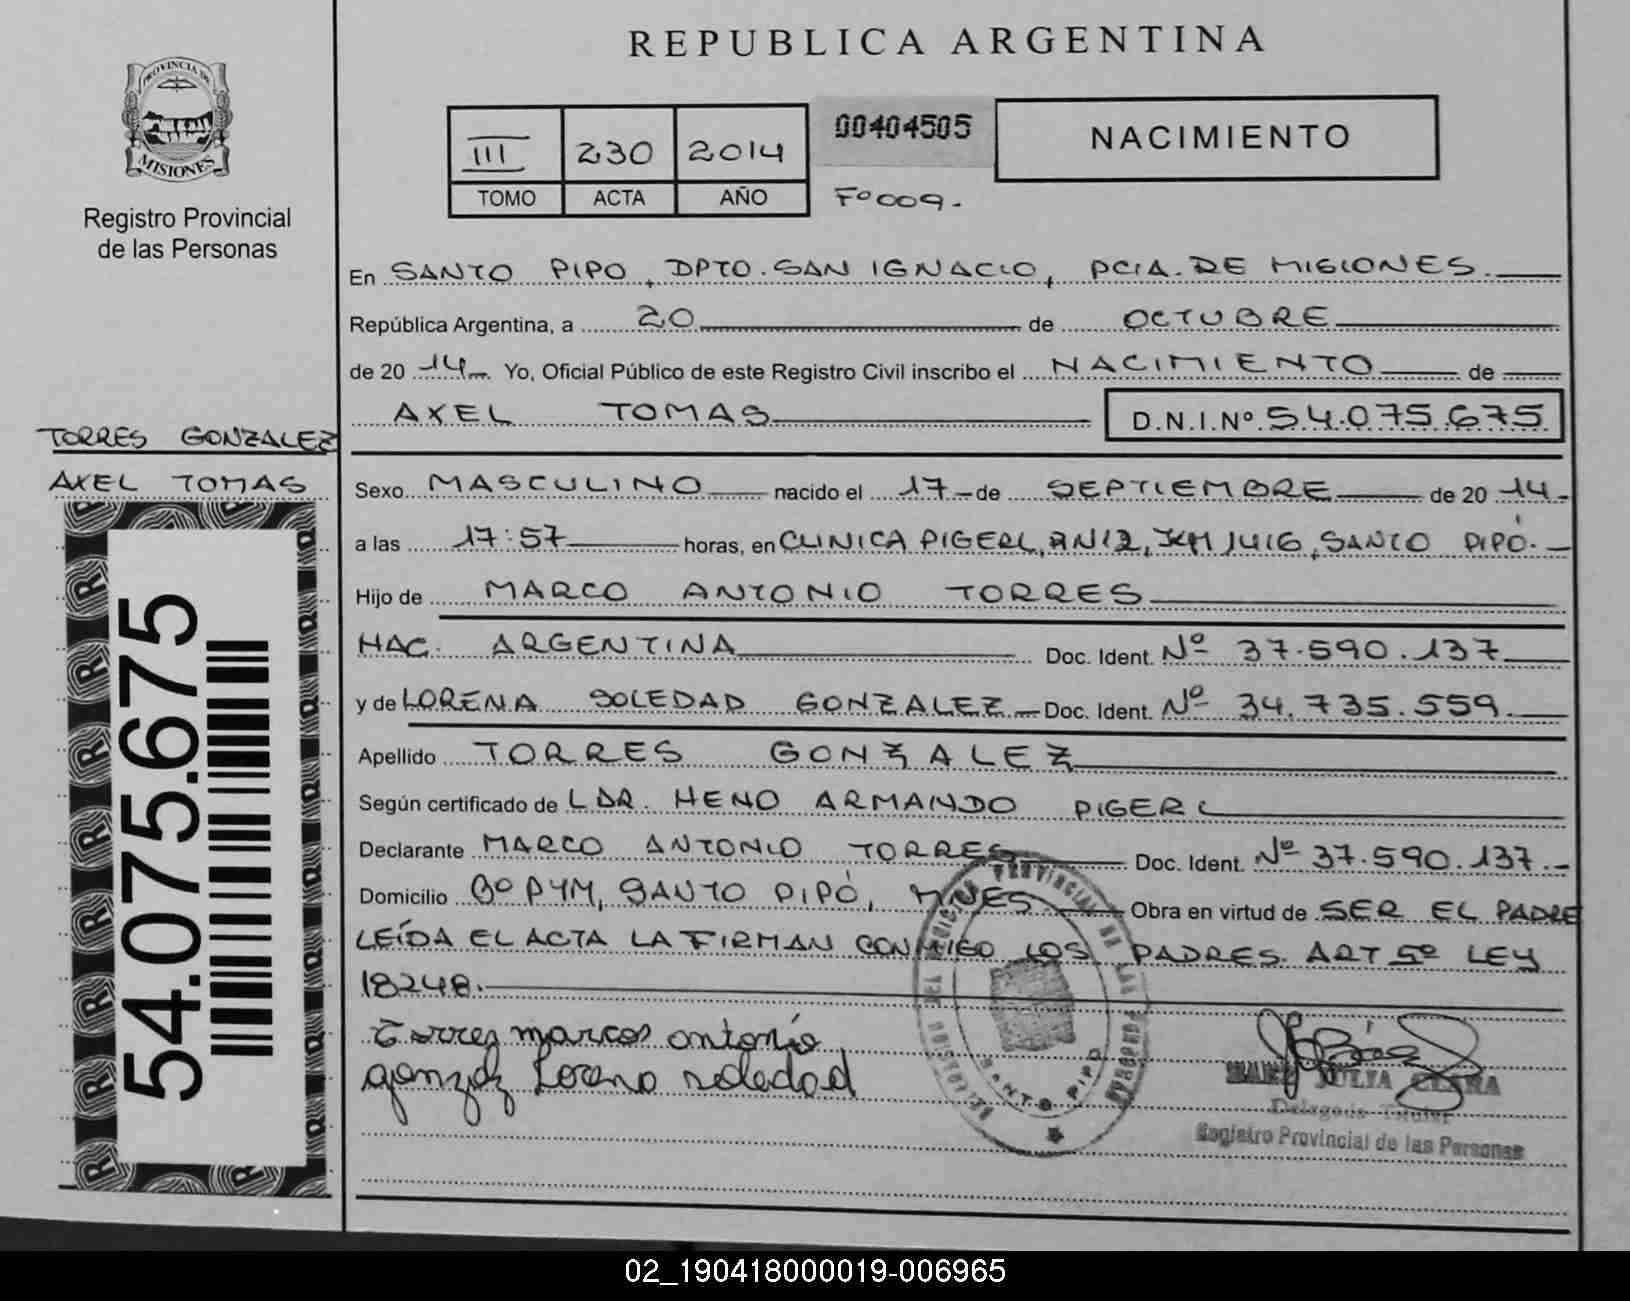 REPUBLICA ARGENTINA
PROVINCIA DE
MISIONES
Registro Provincial
de las Personas
III 230 2014
TOMO ACTA AÑO
00404505
Fº 009.
NACIMIENTO
En SANTO PIPO, DPTO. SAN IGNACIO, PCIA. DE MISIONES.
República Argentina, a 20 de OCTUBRE
de 20 14 Yo, Oficial Público de este Registro Civil inscribo el NACIMIENTO de
AXEL TOMAS D.N.I.Nº 54.075.675
TORRES GONZALEZ
AXEL TOMAS
54.075.675
Sexo MASCULINO nacido el 17 de SEPTIEMBRE de 20 14
a las 17:57 horas, en CLINICA PIGERL, RN12, KM 1416, SANTO PIPÓ.
Hijo de MARCO ANTONIO TORRES
NAC. ARGENTINA Doc. Ident. Nº 37.590.137
y de LORENA SOLEDAD GONZALEZ Doc. Ident. Nº 34.735.559
Apellido TORRES GONZALEZ
Según certificado de DR. HENO ARMANDO PIGERL
Declarante MARCO ANTONIO TORRES Doc. Ident. Nº 37.590.137.
Domicilio Bº PYM, SANTO PIPÓ, MNES Obra en virtud de SER EL PADRE
LEÍDA EL ACTA LA FIRMAN CONMIGO LOS PADRES. ART 5º LEY
18248.
Torres marcos antonio
gonzalez Lorena soledad
SANTO PIPO
Delegada Titular
Registro Provincial de las Personas
02_190418000019-006965